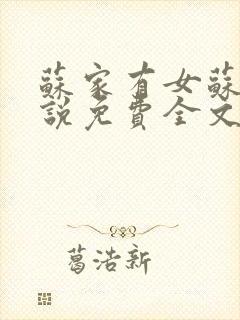 蘇家有女蘇
說免費全文
葛浩新